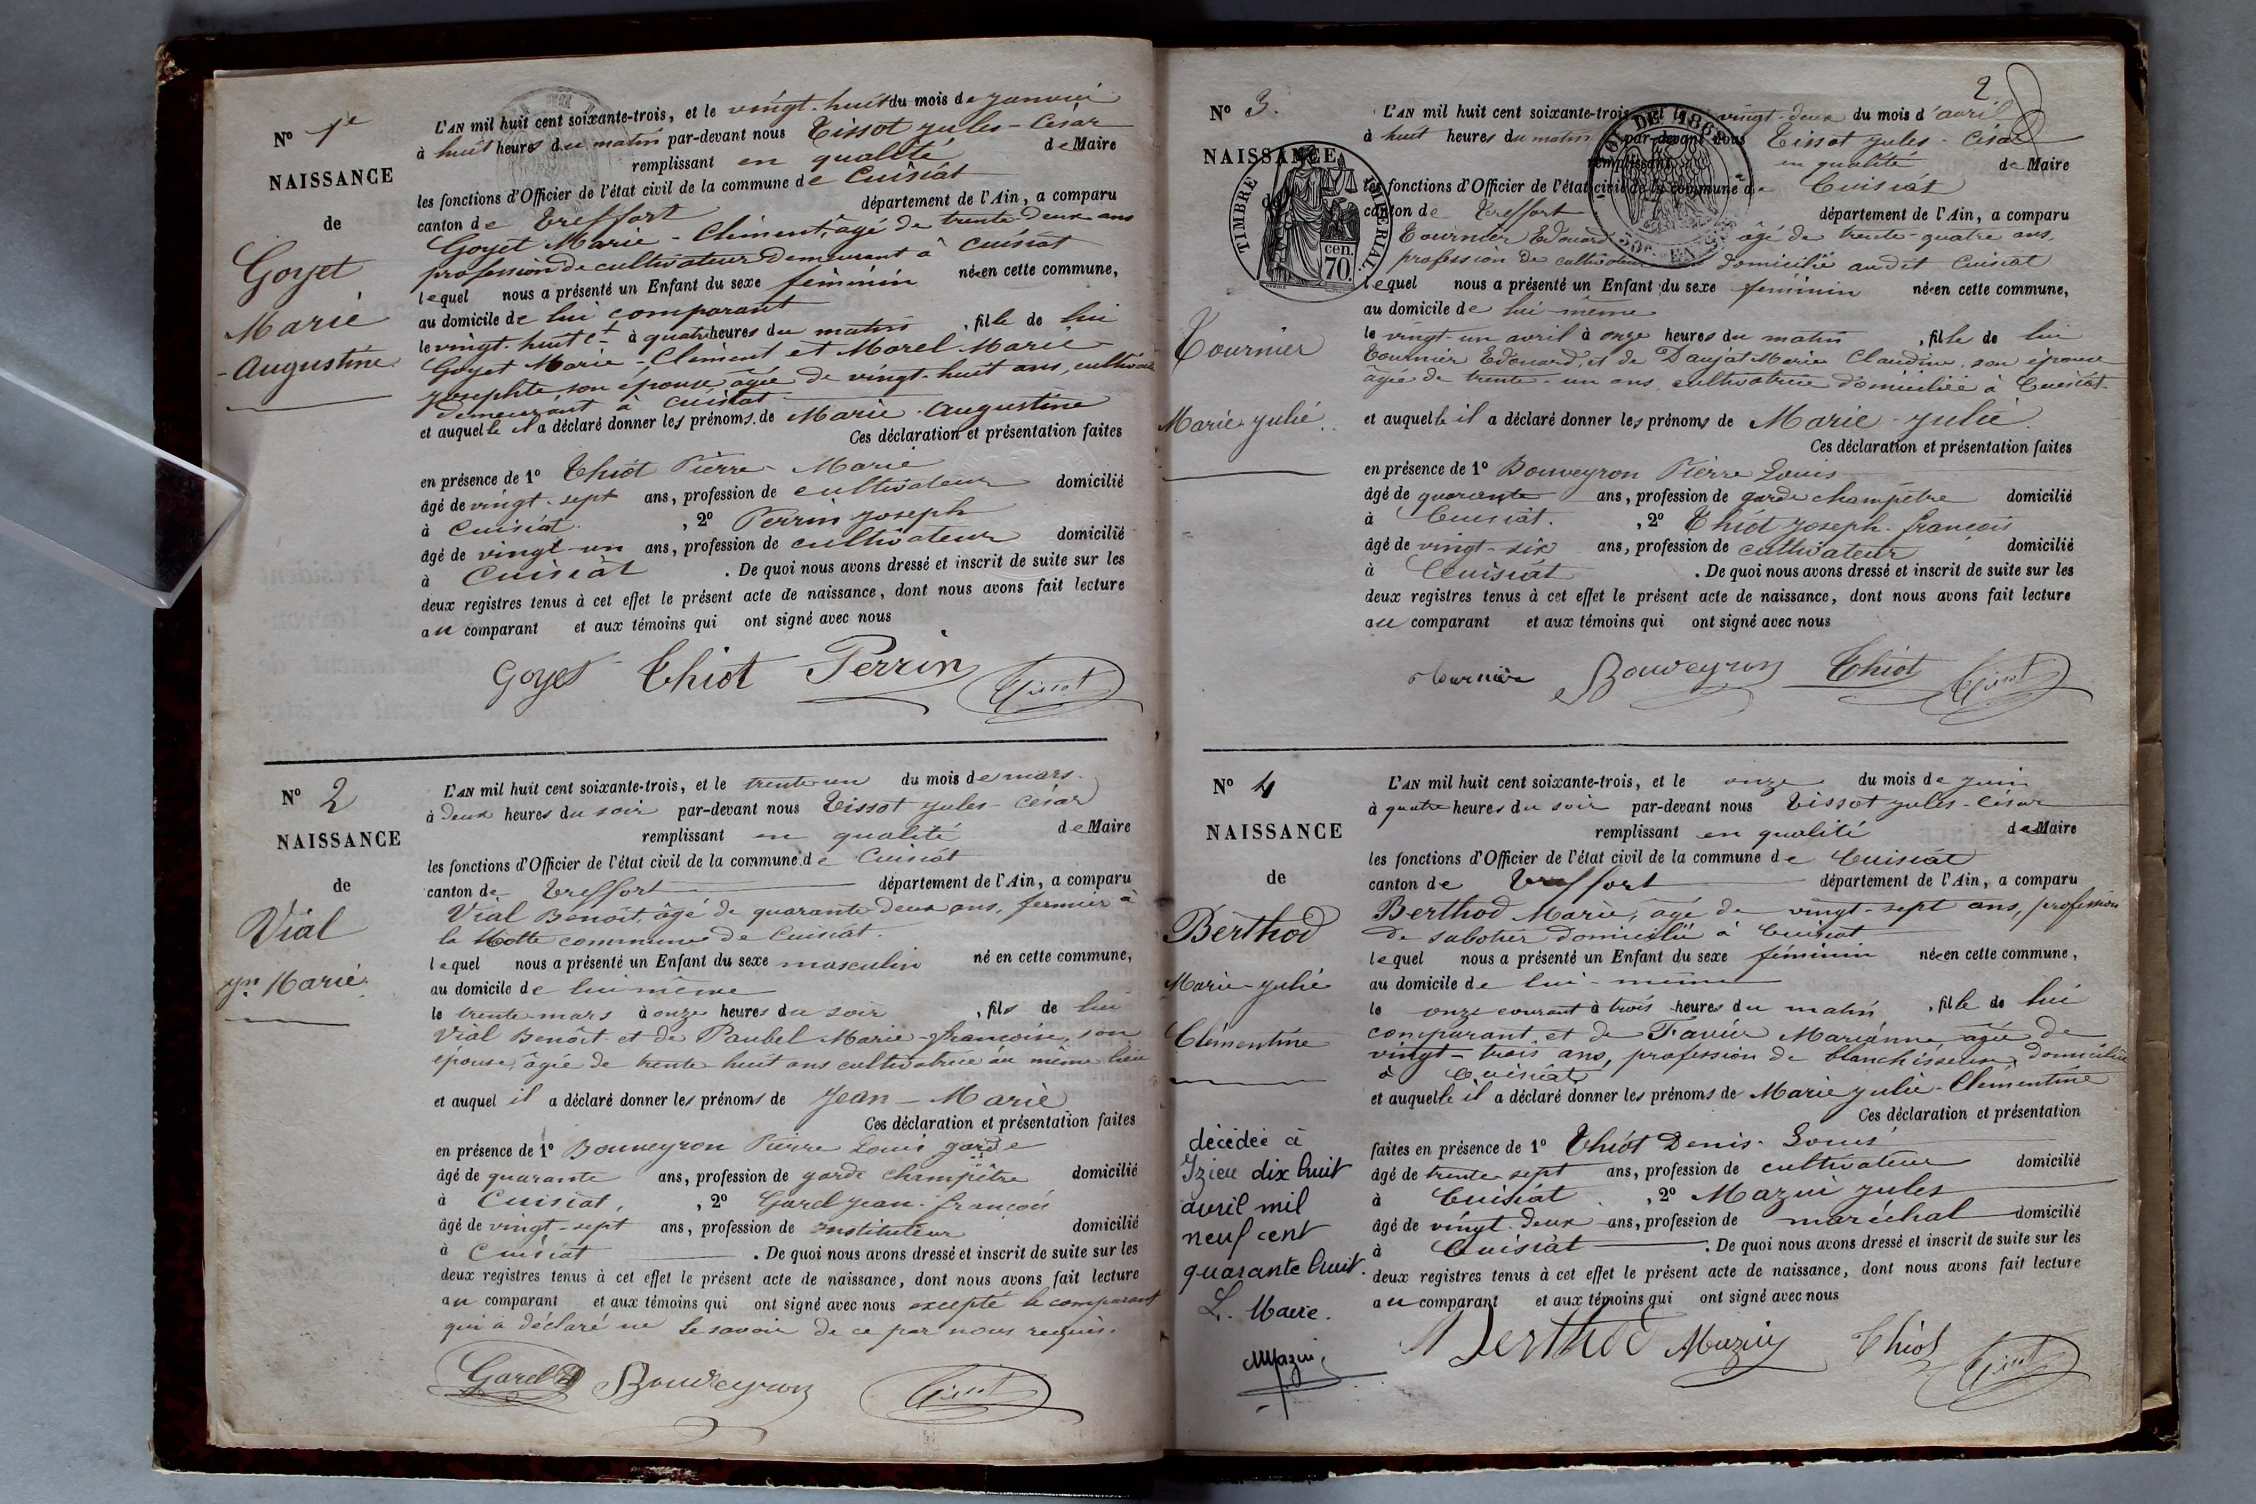 Nº 1e
NAISSANCE
de
Goyet
Marie
-Augustine
L'AN mil huit cent soixante-trois, et le vingt-huit du mois de janvier
à huit heures du matin par-devant nous Tissot Jules-César
remplissant en qualité de Maire
les fonctions d'Officier de l'état civil de la commune de Cuisiat
canton de Treffort département de l'Ain, a comparu
Goyet Marie-Clément, âgé de trente deux ans
profession de cultivateur demeurant à Cuisiat
lequel nous a présenté un Enfant du sexe féminin née en cette commune,
au domicile de lui comparant
le vingt-huit ct à quatre heures du matin, fille de lui
Goyet Marie-Clément et Morel Marie
Josephte son épouse âgée de vingt-huit ans, cultivatrice
demeurant à Cuisiat
et auquelle il a déclaré donner les prénoms de Marie-Augustine
Ces déclaration et présentation faites
en présence de 1º Thiot Pierre-Marie
âgé de vingt-sept ans, profession de cultivateur domicilié
à Cuisiat, 2º Perrin Joseph
âgé de vingt-un ans, profession de cultivateur domicilié
à Cuisiat. De quoi nous avons dressé et inscrit de suite sur les
deux registres tenus à cet effet le présent acte de naissance, dont nous avons fait lecture
au comparant et aux témoins qui ont signé avec nous
Goyet Thiot Perrin Tissot
Nº 2
NAISSANCE
de
Vial
Jn Marie
L'AN mil huit cent soixante-trois, et le trente-un du mois de mars
à deux heures du soir par-devant nous Tissot Jules-César
remplissant en qualité de Maire
les fonctions d'Officier de l'état civil de la commune de Cuisiat
canton de Treffort département de l'Ain, a comparu
Vial Benoît, âgé de quarante-deux ans, fermier à
la Motte commune de Cuisiat.
lequel nous a présenté un Enfant du sexe masculin né en cette commune,
au domicile de lui même
le trente mars à onze heures du soir, fils de lui
Vial Benoît et de Paubel Marie-françoise, son
épouse, âgée de trente huit ans cultivatrice au même lieu
et auquel il a déclaré donner les prénoms de Jean-Marie
Ces déclaration et présentation faites
en présence de 1º Bouveyron Pierre Louis garde
âgé de quarante ans, profession de garde champêtre domicilié
à Cuisiat, 2º Garel Jean-françois
âgé de vingt-sept ans, profession de instituteur domicilié
à Cuisiat. De quoi nous avons dressé et inscrit de suite sur les
deux registres tenus à cet effet le présent acte de naissance, dont nous avons fait lecture
au comparant et aux témoins qui ont signé avec nous excepté le comparant
qui a déclaré ne le savoir de ce par nous requis.
Garel Bouveyron Tissot
2
Nº 3.
NAISSANCE
de
TIMBRE IMPÉRIAL
cen.
70
Tournier
Marie Julie
L'AN mil huit cent soixante-trois, et le vingt-deux du mois d'avril
à huit heures du matin par-devant nous Tissot Jules-César
remplissant en qualité de Maire
les fonctions d'Officier de l'état civil de la commune de Cuisiat
canton de Treffort département de l'Ain, a comparu
Tournier Edouard âgé de trente-quatre ans,
profession de cultivateur domicilié audit Cuisiat
lequel nous a présenté un Enfant du sexe féminin née en cette commune,
au domicile de lui-même
le vingt-un avril à onze heures du matin, fille de lui
Tournier Edouard, et de Daujat Marie Claudine, son épouse
âgée de trente-un ans, cultivatrice domiciliée à Cuisiat.
et auquelle il a déclaré donner les prénoms de Marie-Julie
Ces déclaration et présentation faites
en présence de 1º Bouveyron Pierre Louis
âgé de quarante ans, profession de garde champêtre domicilié
à Cuisiat., 2º Thiot Joseph-françois
âgé de vingt-six ans, profession de cultivateur domicilié
à Cuisiat. De quoi nous avons dressé et inscrit de suite sur les
deux registres tenus à cet effet le présent acte de naissance, dont nous avons fait lecture
au comparant et aux témoins qui ont signé avec nous
Tournier Bouveyron Thiot Tissot
Nº 4
NAISSANCE
de
Berthod
Marie-Julie
Clémentine
décédée à
Izieu dix huit
avril mil
neuf cent
quarante huit.
L. Maire.
Mazuy
L'AN mil huit cent soixante-trois, et le onze du mois de juin
à quatre heures du soir par-devant nous Tissot Jules-César
remplissant en qualité de Maire
les fonctions d'Officier de l'état civil de la commune de Cuisiat
canton de Treffort département de l'Ain, a comparu
Berthod Marie, âgé de vingt-sept ans, profession
de sabotier domicilié à Cuisiat
lequel nous a présenté un Enfant du sexe féminin née en cette commune,
au domicile de lui-même
le onze courant à trois heures du matin, fille de lui
comparant et de Favier Marianne âgée de
vingt-trois ans, profession de blanchisseuse domiciliée
à Cuisiat
et auquelle il a déclaré donner les prénoms de Marie Julie-Clémentine
Ces déclaration et présentation
faites en présence de 1º Thiot Denis-Louis
âgé de trente-sept ans, profession de cultivateur domicilié
à Cuisiat, 2º Mazui Jules
âgé de vingt-deux ans, profession de maréchal domicilié
à Cuisiat. De quoi nous avons dressé et inscrit de suite sur les
deux registres tenus à cet effet le présent acte de naissance, dont nous avons fait lecture
au comparant et aux témoins qui ont signé avec nous
Berthod Mazuy Thiot Tissot